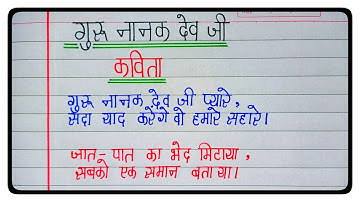 गुरु नानक देव जी
कविता
गुरु नानक देव जी प्यारे,
सदा याद करेंगे वो हमारे सहारे।
जात-पात का भेद मिटाया,
सबको एक समान बताया।